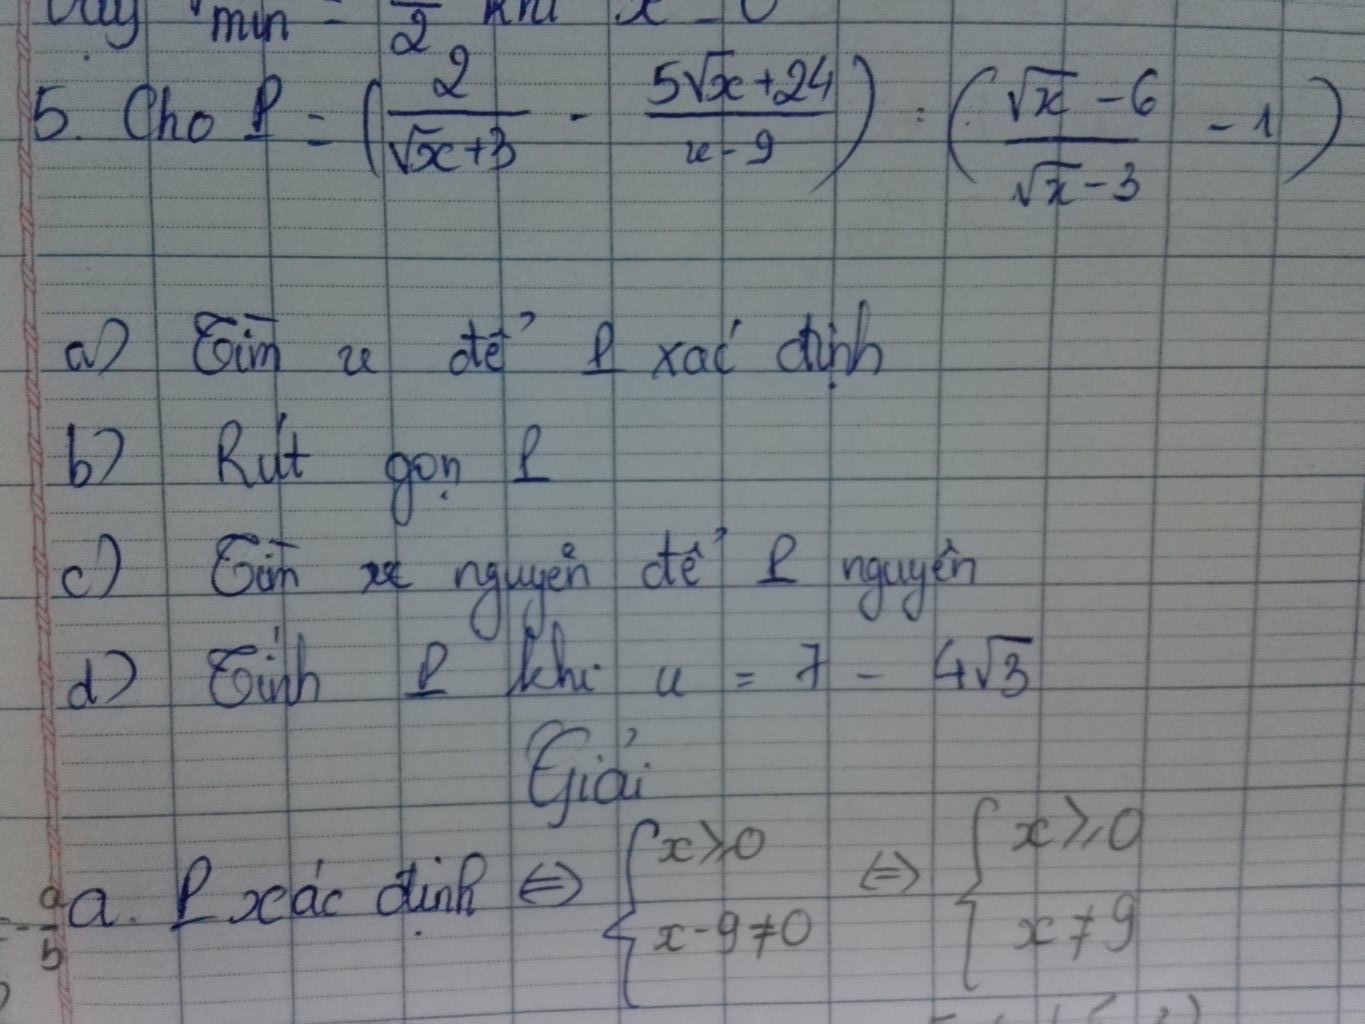 min = /2 khi x = 0
5. Cho P = (2/(√x+3) - (5√x+24)/(x-9)) : ((√x-6)/(√x-3) - 1)
a) Tìm x để P xác định
b) Rút gọn P
c) Tìm x nguyên để P nguyên
d) Tính P khi x = 7 - 4√3
Giải
a. P xác định ⇔ { x ≥ 0 ; x-9 ≠ 0 ⇔ { x ≥ 0 ; x ≠ 9